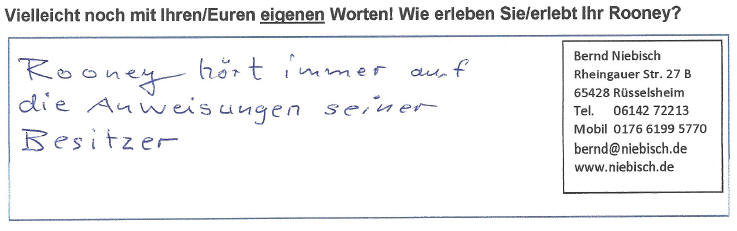 Vielleicht noch mit Ihren/Euren eigenen Worten! Wie erleben Sie/erlebt Ihr Rooney?
Rooney hört immer auf
die Anweisungen seiner
Besitzer
Bernd Niebisch
Rheingauer Str. 27 B
65428 Rüsselsheim
Tel. 06142 72213
Mobil 0176 6199 5770
bernd@niebisch.de
www.niebisch.de